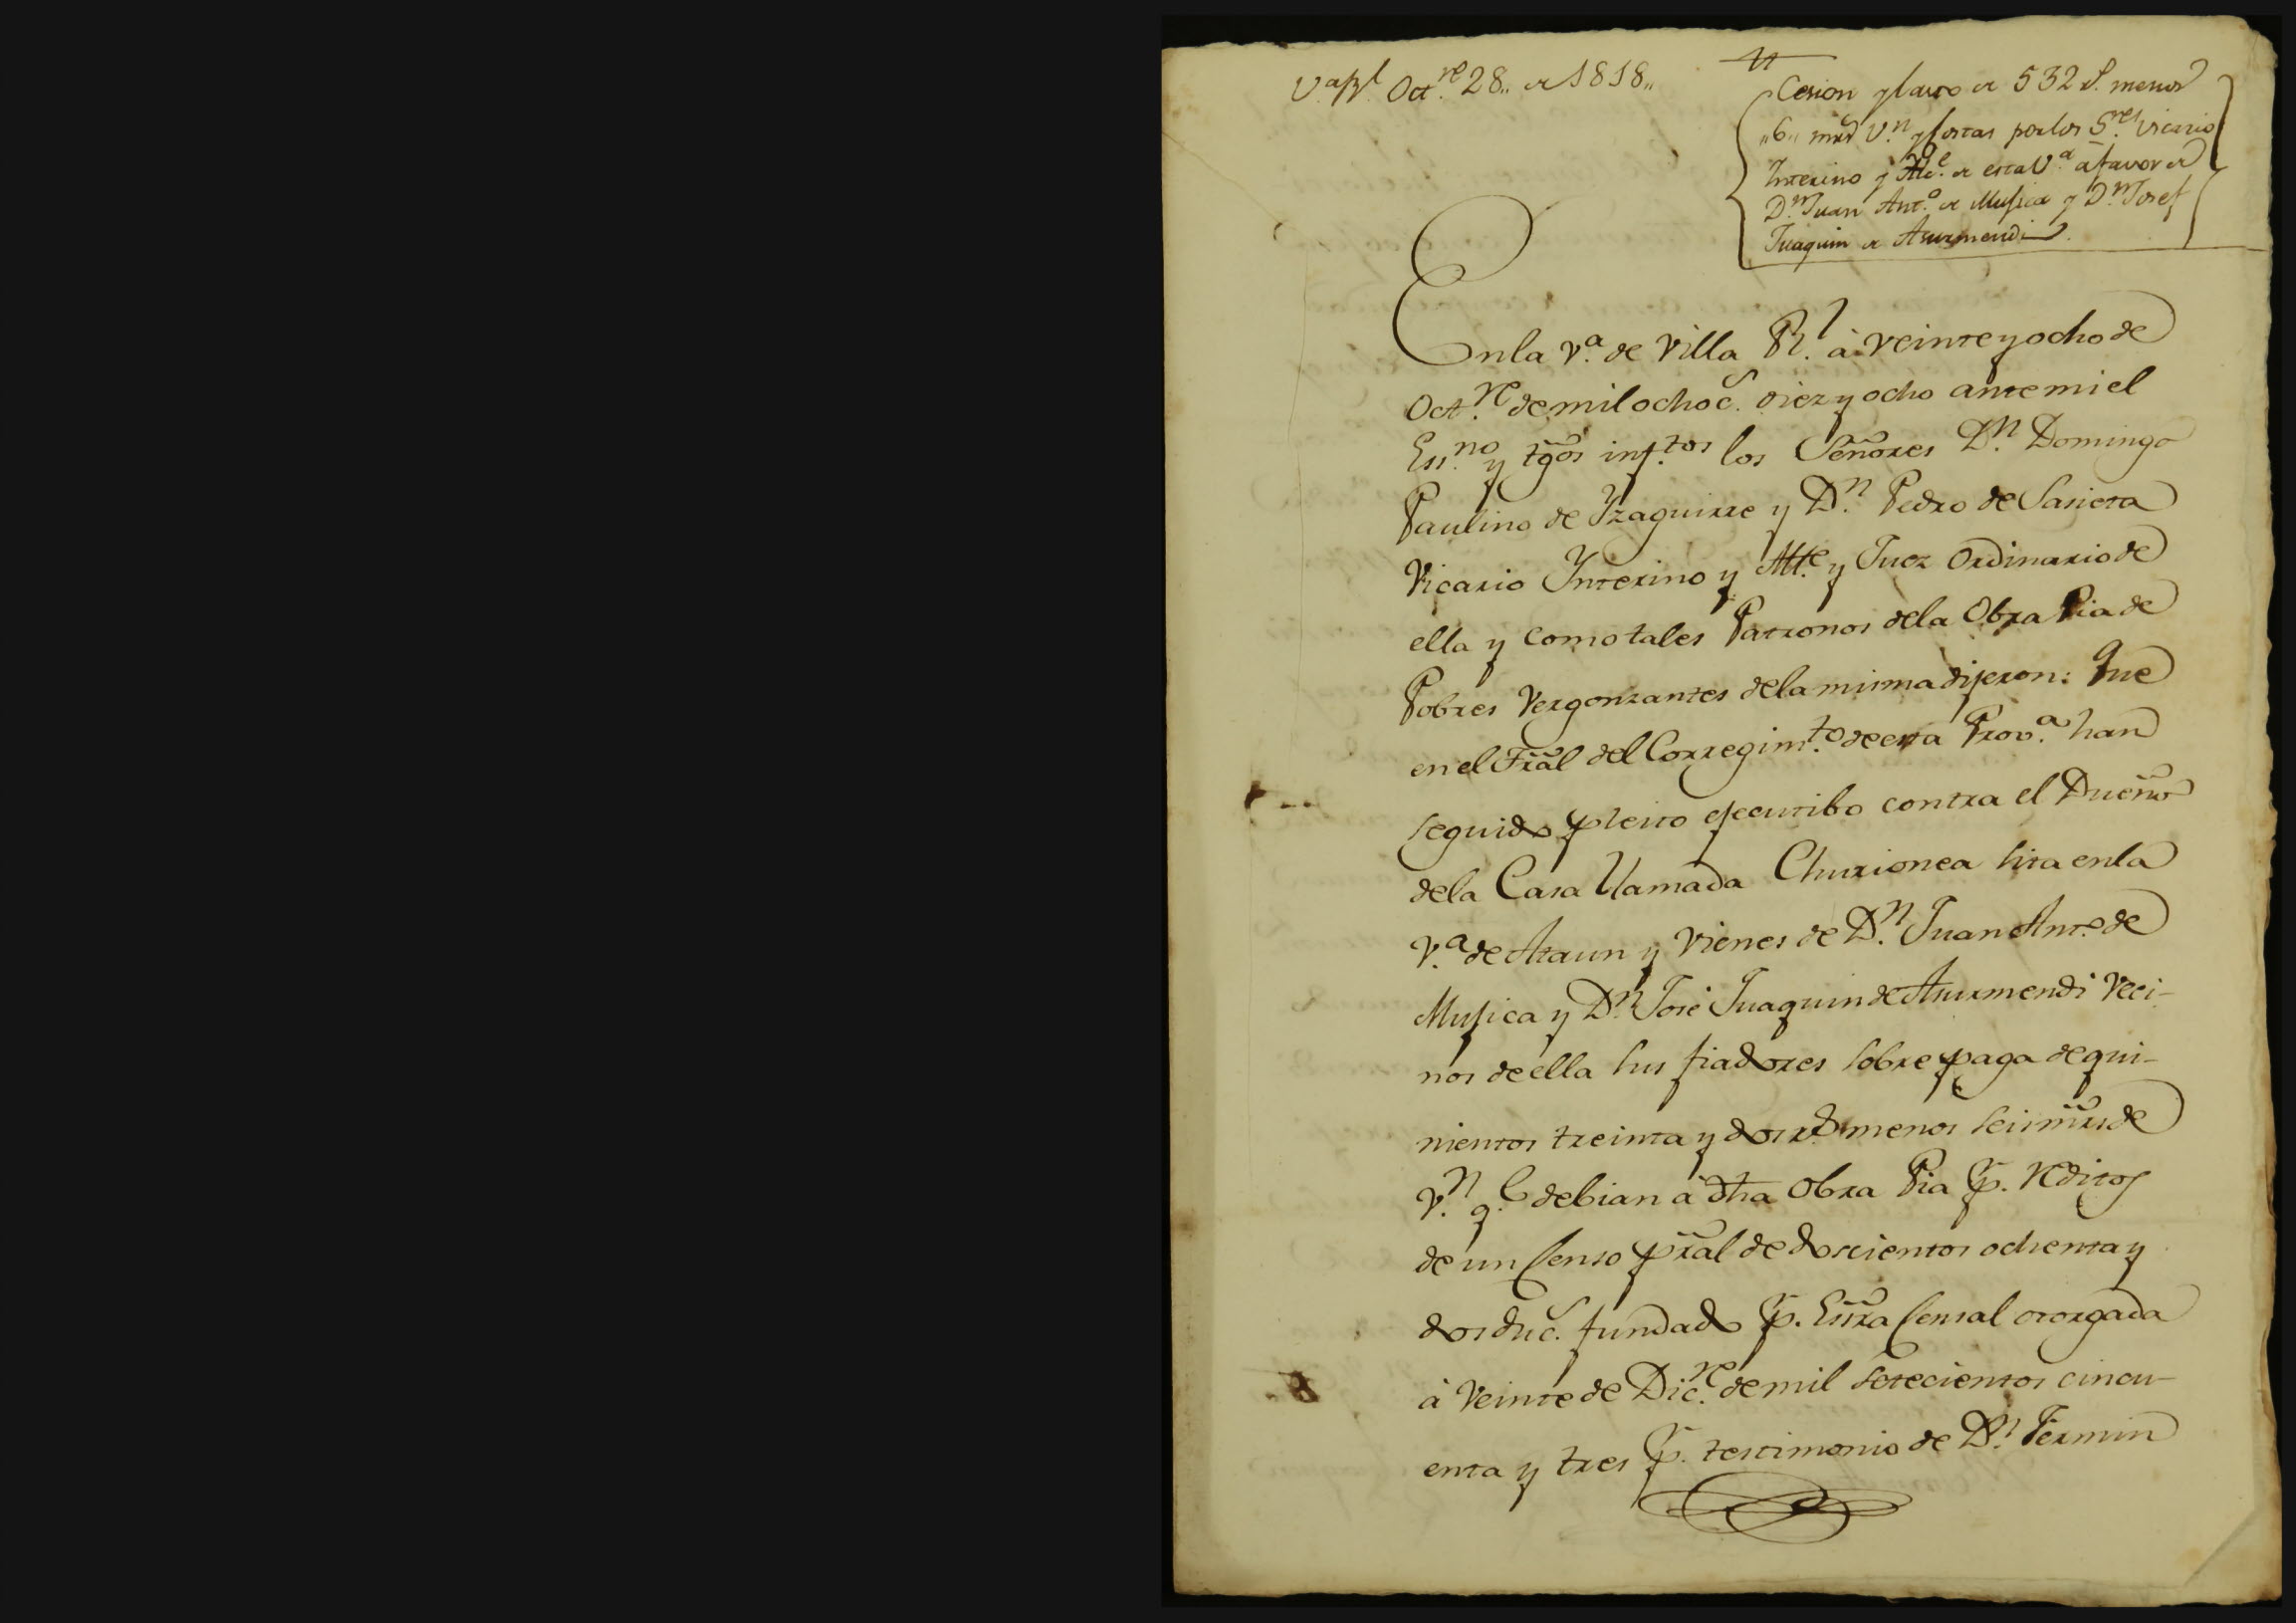 V.ª R.l Oct.re 28,, de 1818,,
Cesion y lasto de 532 r.s menos
,,6,, mrs V.n y Costas por los S.res Vicario
Interino y Alc.e de esta V.ª á favor de
D.n Juan Ant.o de Mujica y D.n Josef
Juaquin de Asurmendi.
En la V.ª de Villa R.l à veinte y ocho de
Oct.re de mil ochoc.s diez y ocho ante mi el
Ess.no y tgõs inf.tos los Señores D.n Domingo
Paulino de Yzaguirre y D.n Pedro de Sasieta
Vicario Ynterino y Alc.e y Juez Ordinario de
ella y como tales Patronos de la Obra Pia de
Pobres Vergonzantes de la misma dijeron: Que
en el Trãl del Corregim.to de esta Prov.ª han
seguido pleito ejecutibo contra el Dueño
de la Casa llamada Churionea sita en la
V.ª de Ataun y Vienes de D.n Juan Ant.o de
Mujica y D.n José Juaquin de Asurmendi Veci-
nos de ella sus fiadores sobre paga de qui-
nientos treinta y dos r.s menos seis mrs de
V.n q.e debian à dha Obra Pia p. reditos
de un Censo prãl de doscientos ochenta y
dos duc.s fundado p. Essrã Censal otorgada
à Veinte de Dic.re de mil setecientos cincu-
enta y tres p. testimonio de D.n Fermin